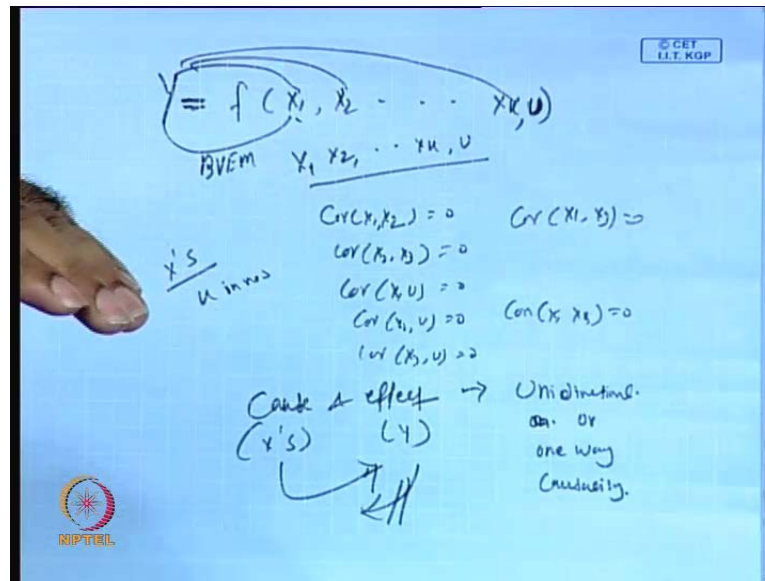 © CET
I.I.T. KGP
Y = f (X1, X2 . . . XK, U)
BVEM X1 X2, . . XK, U
Cov(X1,X2) = 0 Cov(X1, X3) = 0
Cov(X2, X3) = 0
X's
Cov(X, U) = 0
Cov(X1, U) = 0 = 0
Cov(X3, U) = 0
Cause & effect → Unidirectional.
(X's) (Y) or
one way
Causality.
NPTEL